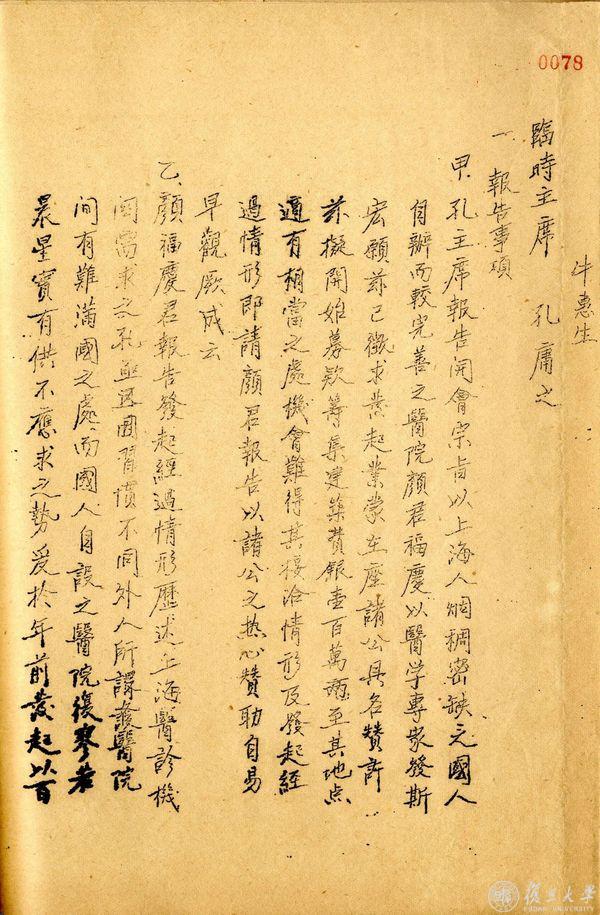 0078
牛惠生
臨時主席 孔庸之
一 報告事項
甲、孔主席報告開會宗旨以上海人烟稠密缺乏國人
自辦而較完善之醫院顏君福慶以醫学專家發斯
宏願茲已徵求發起業蒙在座諸公具名贊許
茲擬開始募欵籌集建築費銀壹百萬両至其地点
適有相當之處機會難得其接洽情形及發起經
過情形即請顏君報告以諸公之热心贊助自易
早觀厥成云
乙、顏福慶君報告發起經過情形歷述上海醫診機
関需求之孔亟返國習慣不同外人所謀設醫院
間有難滿國之處而國人自設之醫院復寥若
晨星實有供不應求之勢爰於年前發起以百
復旦大學
FUDAN UNIVERSITY